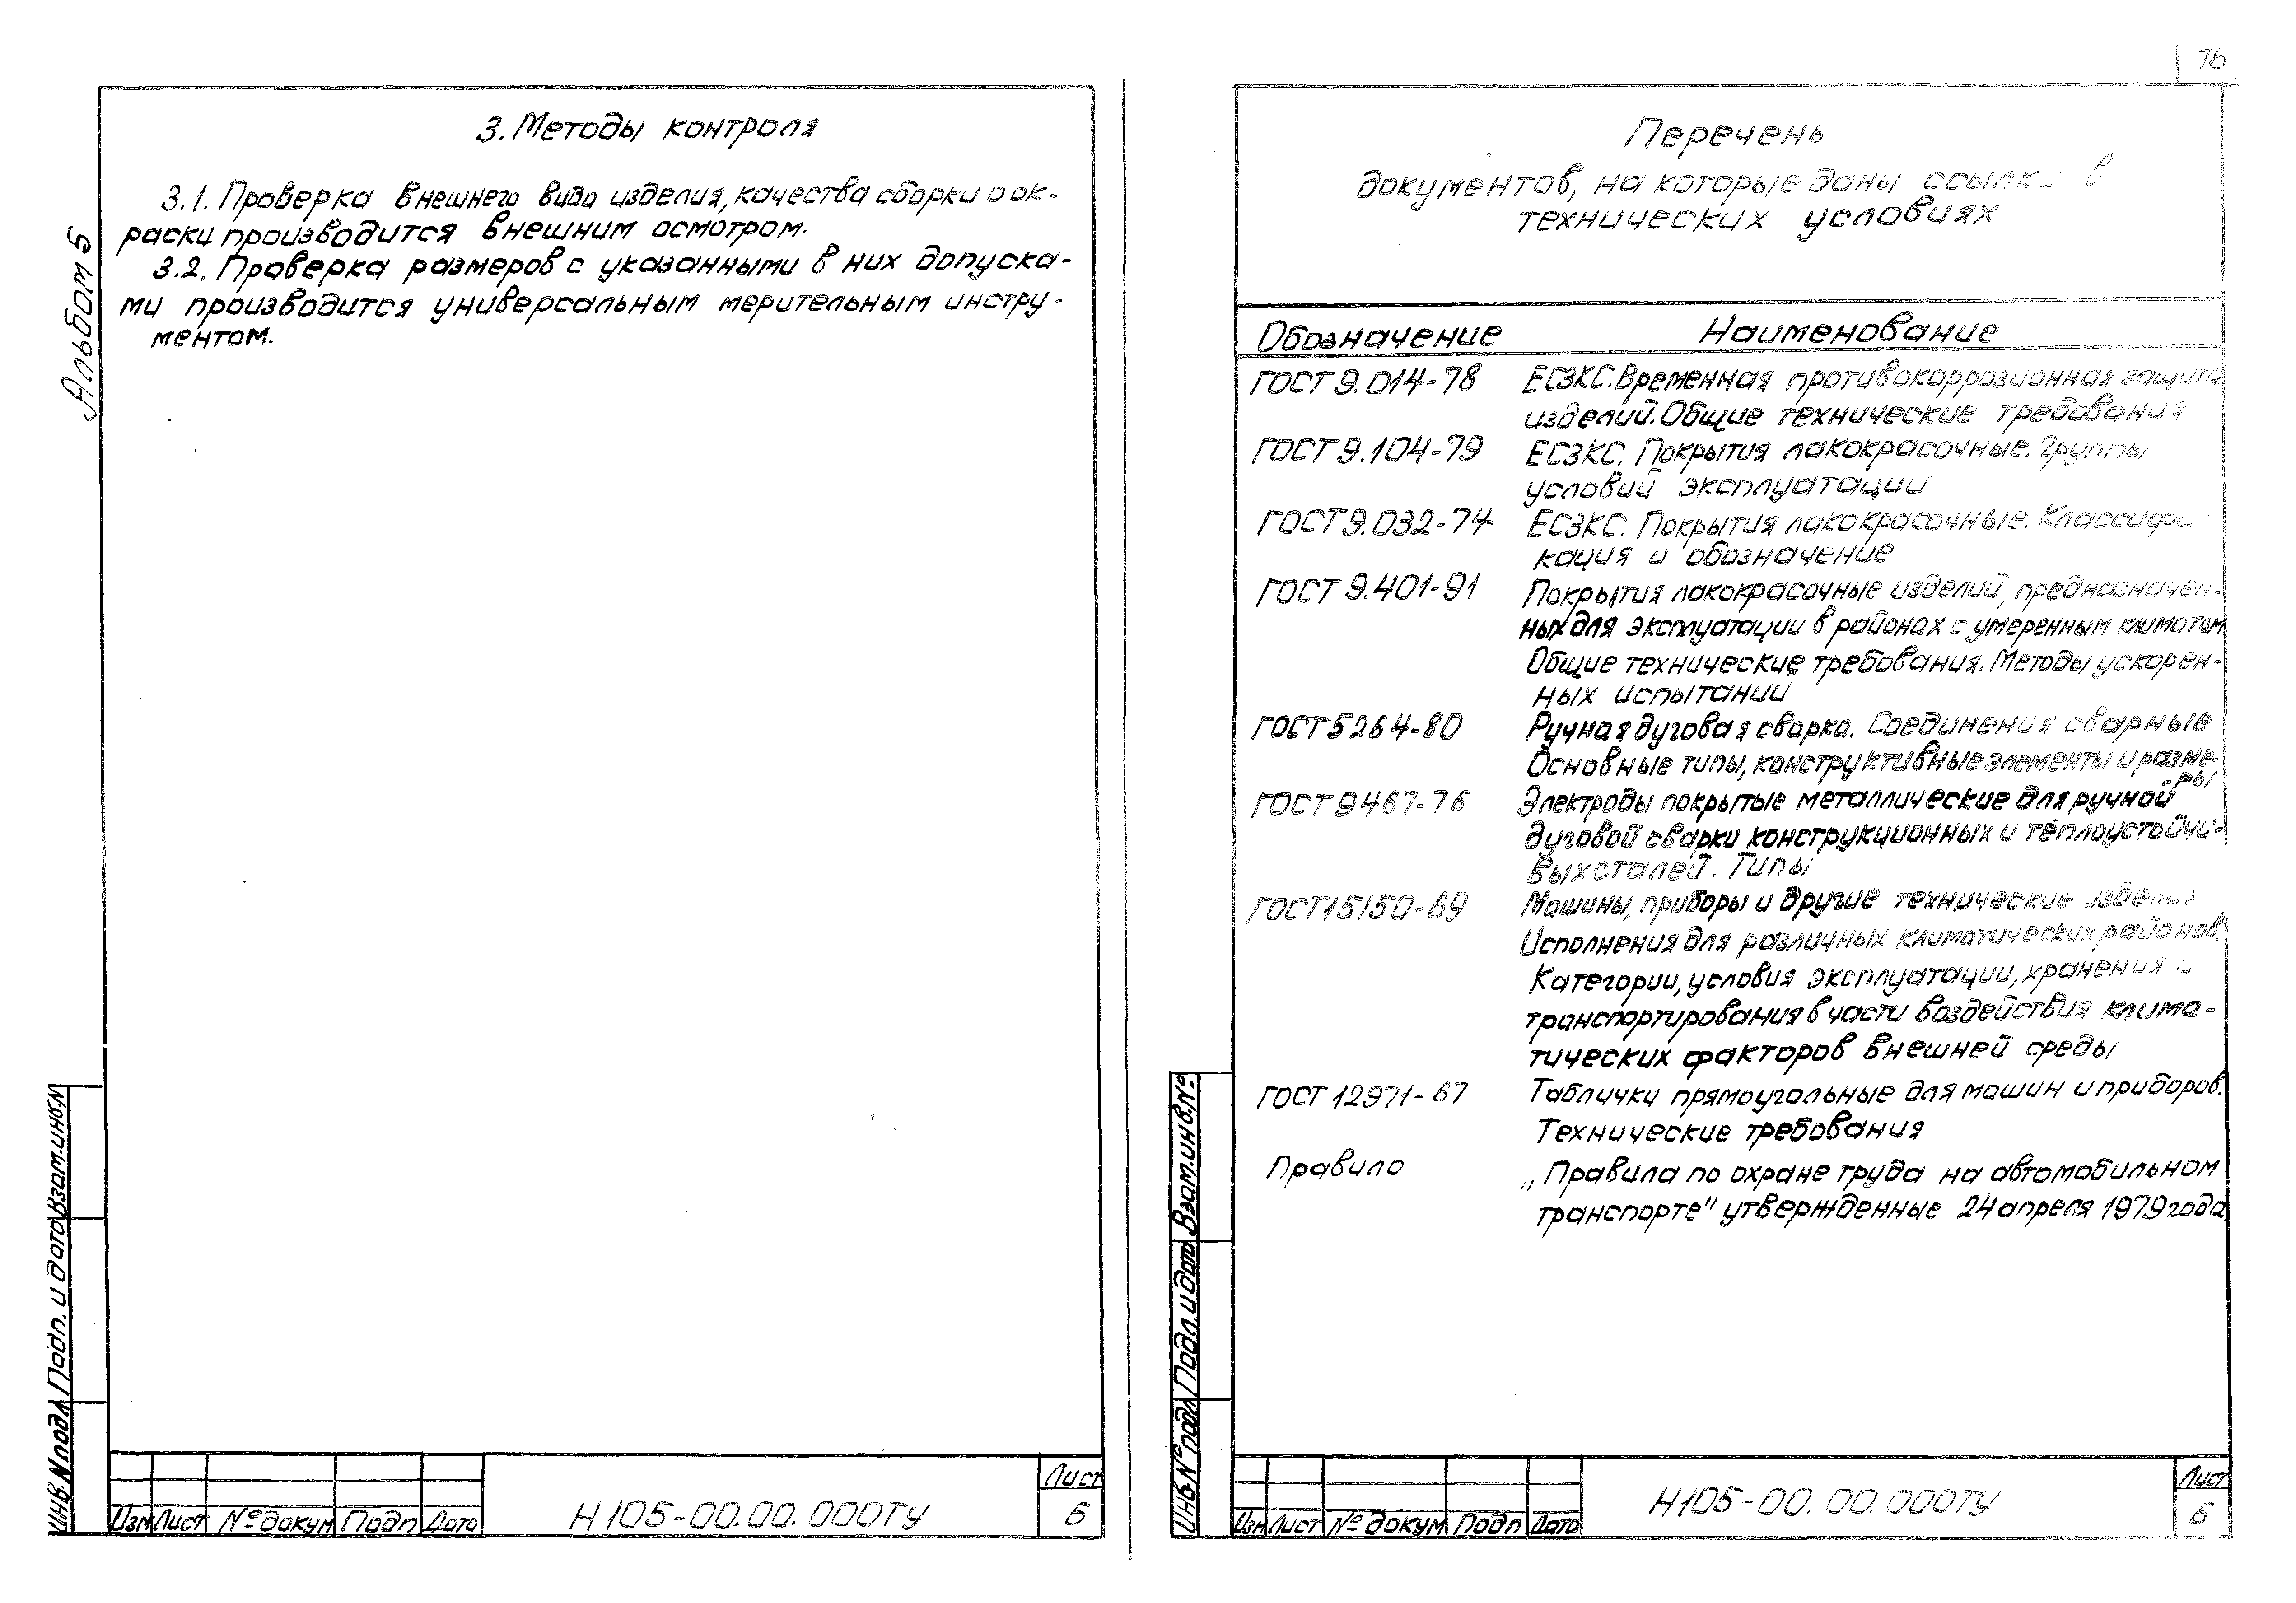 76
Альбом 5
3. Методы контроля
3.1. Проверка внешнего вида изделия, качества сборки о ок-
раски производится внешним осмотром.
3.2. Проверка размеров с указанными в них допуска-
ми производится универсальным мерительным инстру-
ментом.
Инв.N подл Подп. и дата Взам.инв.N
Изм Лист №докум Подп Дата
Н105-00.00.000ТУ
Лист
5
Перечень
документов, на которые даны ссылки в
технических условиях
Обозначение Наименование
ГОСТ 9.014-78 ЕСЗКС. Временная противокоррозионная защита
изделий. Общие технические требования
ГОСТ 9.104-79 ЕСЗКС. Покрытия лакокрасочные. Группы
условий эксплуатации
ГОСТ 9.032-74 ЕСЗКС. Покрытия лакокрасочные. Классифи-
кация и обозначение
ГОСТ 9.401-91 Покрытия лакокрасочные изделий, предназначен-
ных для эксплуатации в районах с умеренным климатом
Общие технические требования. Методы ускорен-
ных испытаний
ГОСТ 5264-80 Ручная дуговая сварка. Соединения сварные
Основные типы, конструктивные элементы и разме-
ры
ГОСТ 9467-76 Электроды покрытые металлические для ручной
дуговой сварки конструкционных и теплоустойчи-
вых сталей. Типы
ГОСТ 15150-69 Машины, приборы и другие технические изделия
Исполнения для различных климатических районов.
Категории, условия эксплуатации, хранения и
транспортирования в части воздействия клима-
тических факторов внешней среды
ГОСТ 12971-67 Таблички прямоугольные для машин и приборов.
Технические требования
Правила „Правила по охране труда на автомобильном
транспорте" утвержденные 24 апреля 1979 года
Инв.№ подл Подп. и дата Взам.инв.№
Изм Лист № докум Подп Дата
Н105-00.00.000ТУ
Лист
6